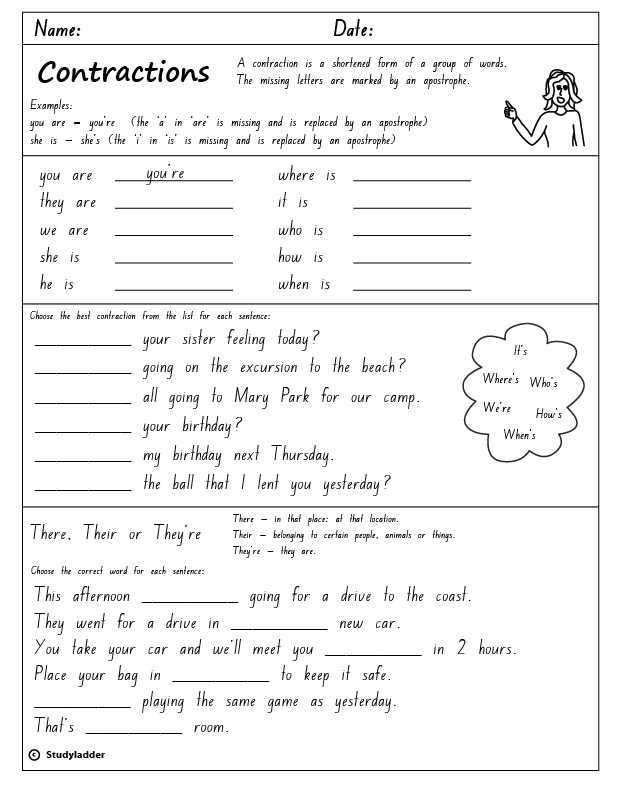 Name: Date:
Contractions
A contraction is a shortened form of a group of words.
The missing letters are marked by an apostrophe.
Examples:
you are – you're (the 'a' in 'are' is missing and is replaced by an apostrophe)
she is – she's (the 'i' in 'is' is missing and is replaced by an apostrophe)
you are you're where is ____________
they are ____________ it is ____________
we are ____________ who is ____________
she is ____________ how is ____________
he is ____________ when is ____________
Choose the best contraction from the list for each sentence:
__________ your sister feeling today?
__________ going on the excursion to the beach?
__________ all going to Mary Park for our camp.
__________ your birthday?
__________ my birthday next Thursday.
__________ the ball that I lent you yesterday?
It's
Where's Who's
We're How's
When's
There, Their or They're
There – in that place: at that location.
Their – belonging to certain people, animals or things.
They're – they are.
Choose the correct word for each sentence:
This afternoon __________ going for a drive to the coast.
They went for a drive in __________ new car.
You take your car and we'll meet you __________ in 2 hours.
Place your bag in __________ to keep it safe.
__________ playing the same game as yesterday.
That's __________ room.
© Studyladder